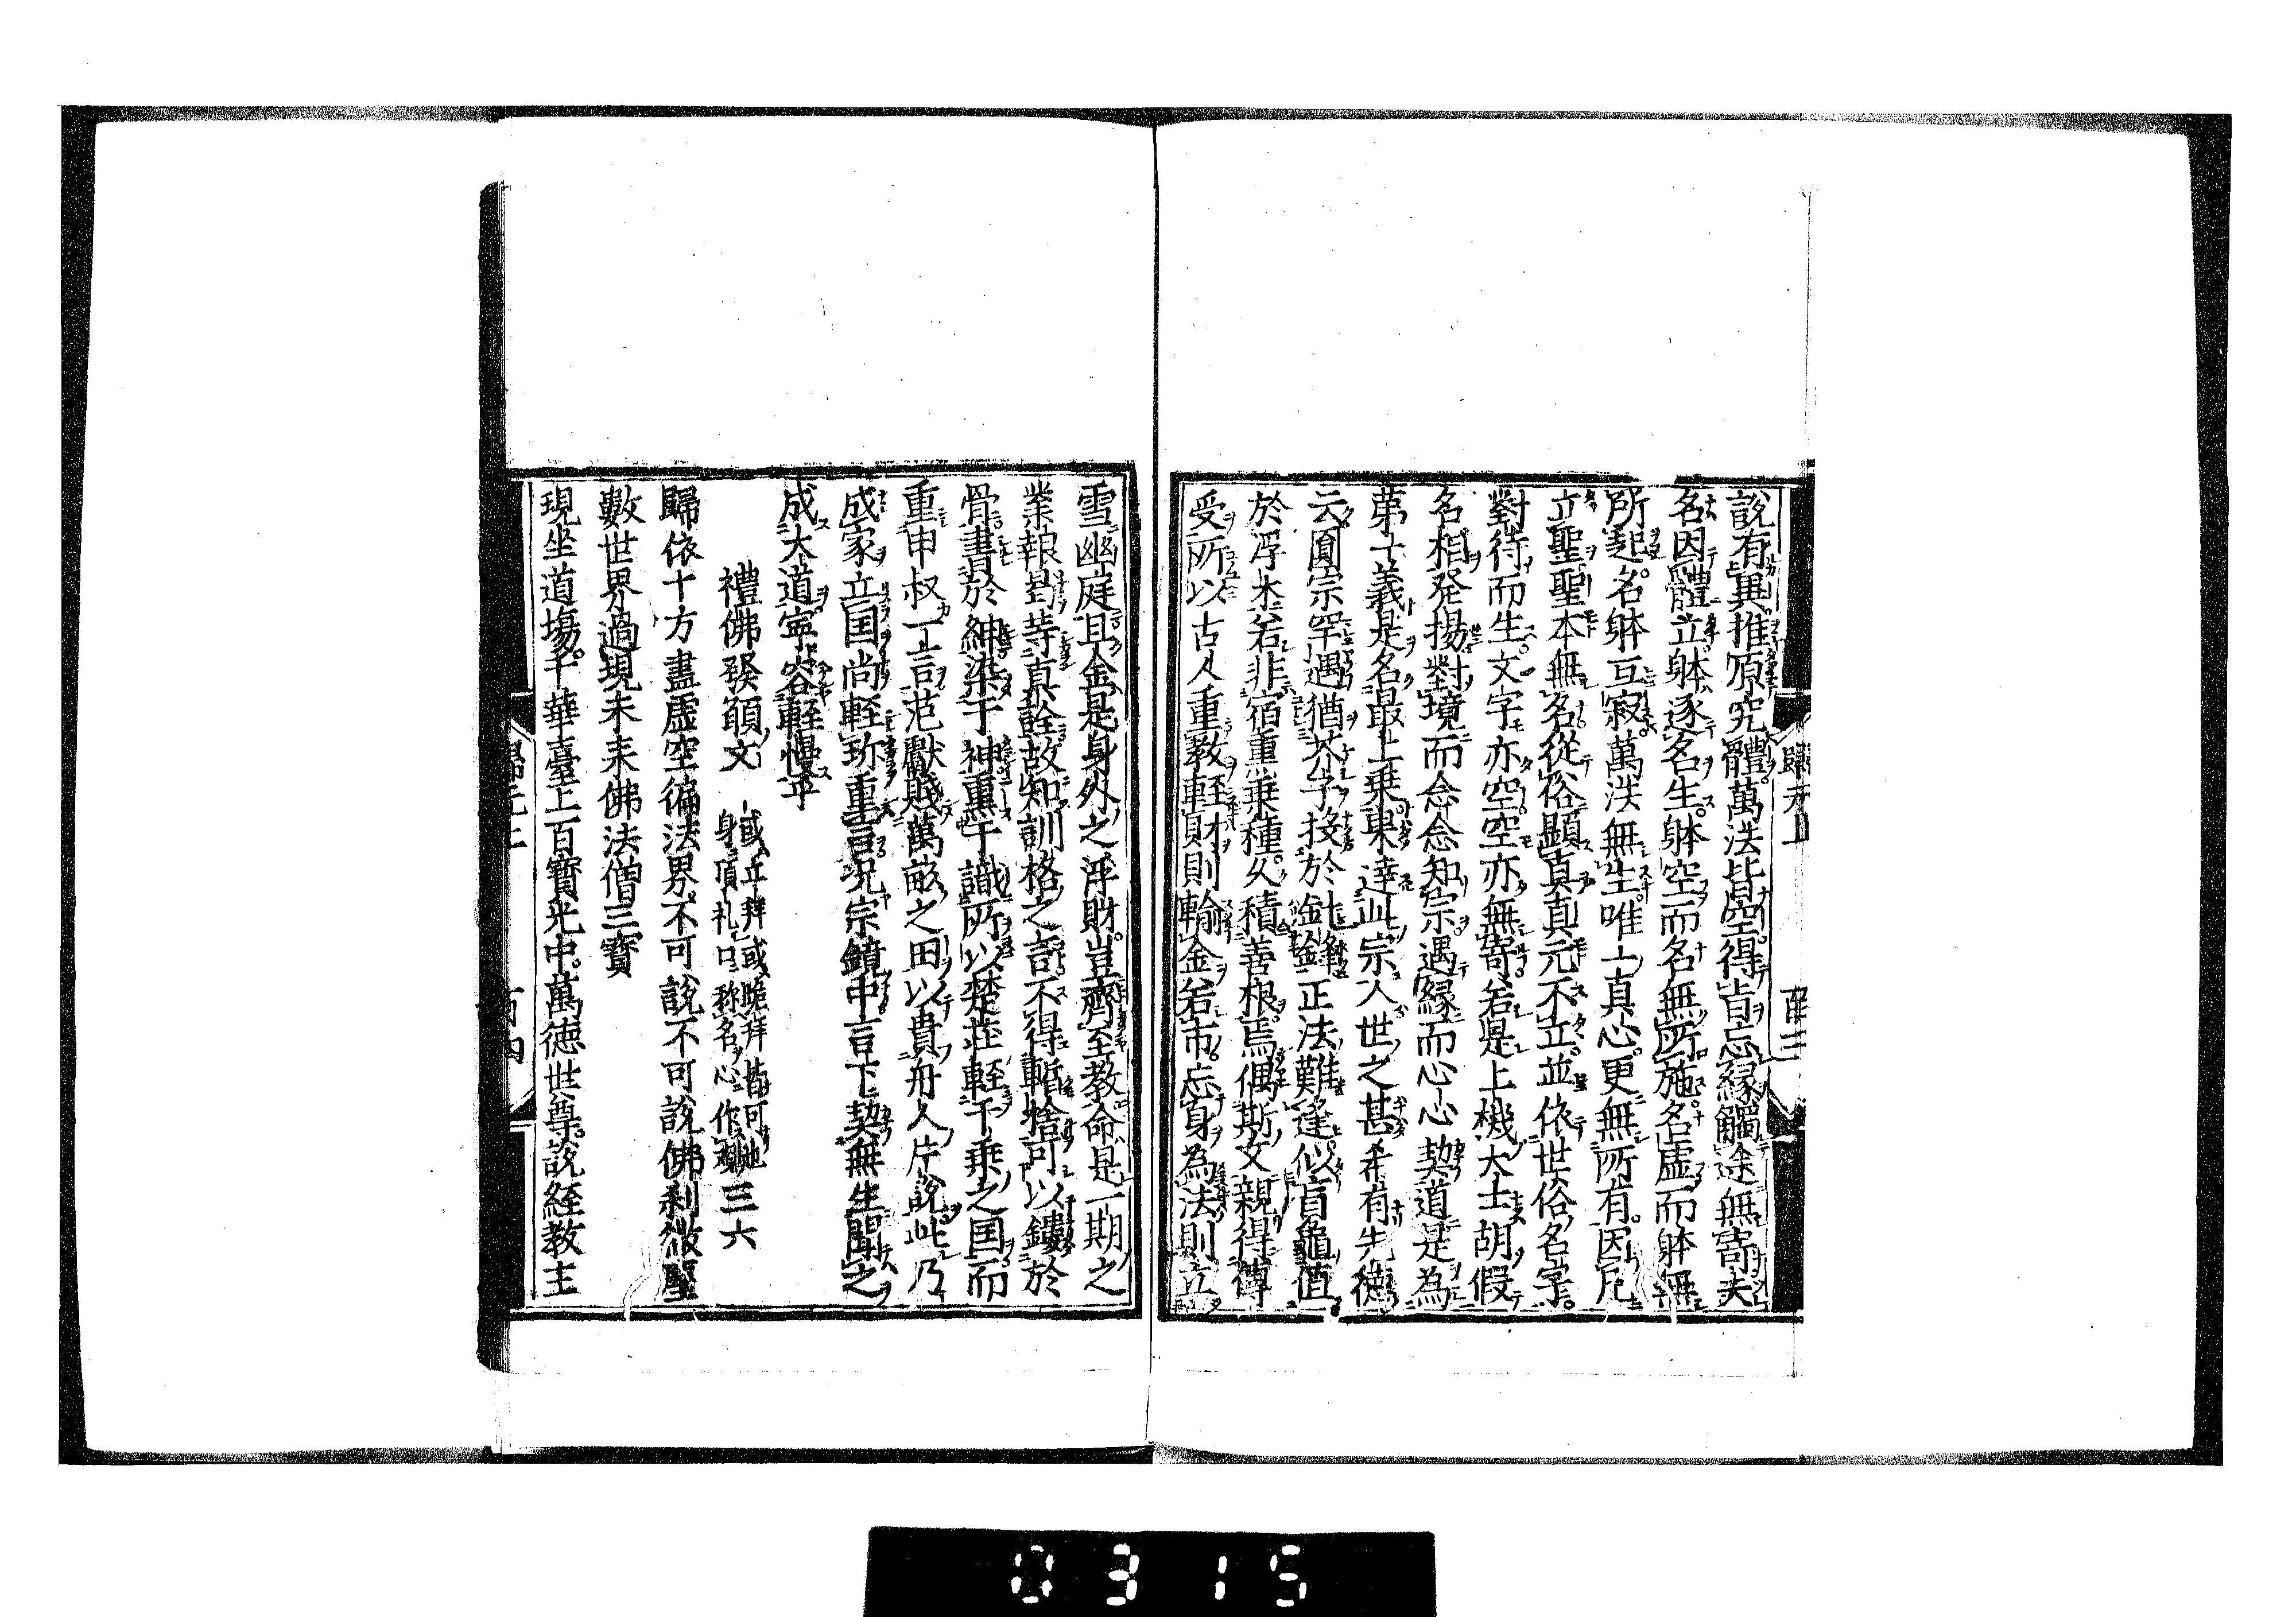 說有異推原究體萬法皆空得旨忘縁觸途無寄夫
名因體立躰逐名生躰空而名無所施名虛而躰無
所起名躰互寂萬法無生唯一真心更無所有因凡
立聖聖本無名從俗顯真真元不立並依世俗名字
對待而生文字亦空空亦無寄若是上機大士胡假
名相發揚對境而念念知宗遇縁而心心契道是為
第一義是名最上乗果達此宗人世之甚希有先德
云圓宗罕遇猶芥子投於針鋒正法難逢似盲龜值
於浮木若非宿重乗種久積善根焉偶斯文親得傳
受所以古人重教輕財則輸金若市忘身為法則立
歸元上
百三
雪幽庭且金是身外之浮財豈齊至教命是一期之
業報曷等真詮故知訓格之言不得暫捨可以鏤於
骨書於紳染于神熏于識所以楚莊輕千乗之国而
重申叔一言范獻賤萬畝之田以貴舟人片說此乃
成家立国尚輕珍重言况宗鏡中言下契無生聞之
成大道寧容輕慢乎
禮佛發願文
或立拜或跪拜皆可也
身頂礼口称名心作觀
三六
歸依十方盡虛空徧法界不可說不可說佛刹微塵
數世界過現未来佛法僧三寶
現坐道場千華臺上百寶光中萬德世尊說經教主
歸元上
百四
0315